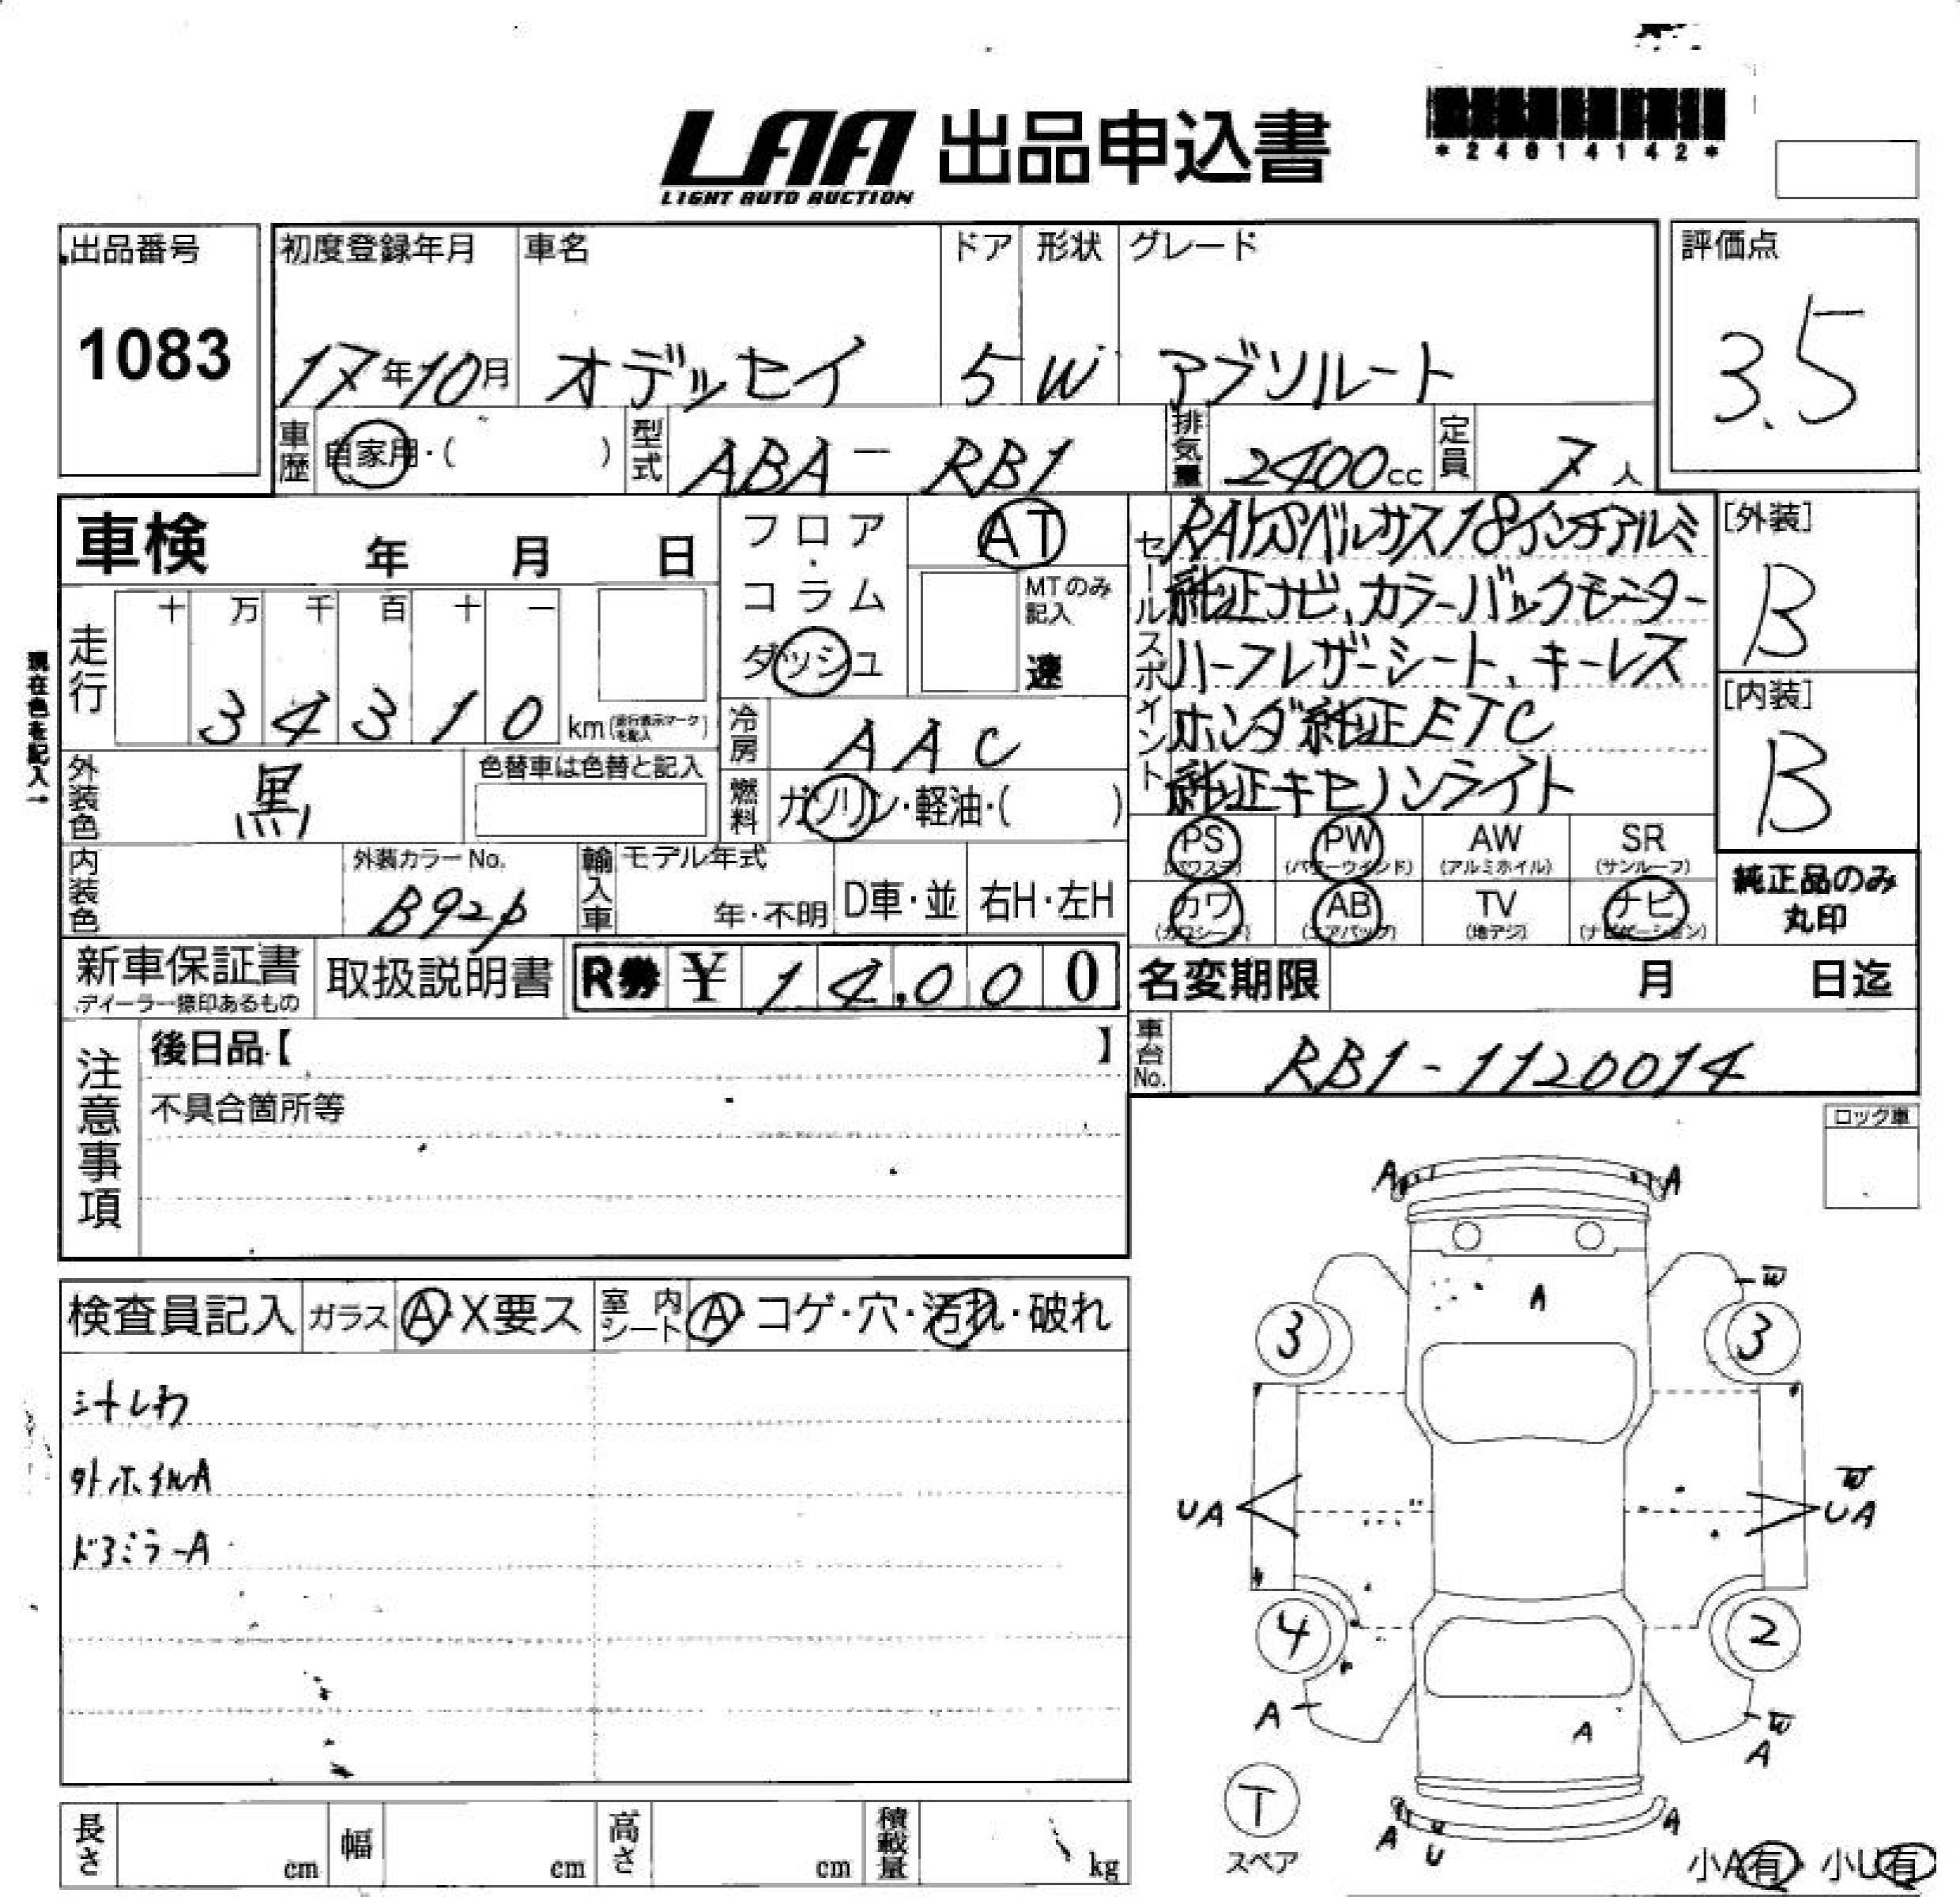 LAA 出品申込書
LIGHT AUTO AUCTION
*24014142*
出品番号 初度登録年月 車名 ドア 形状 グレード 評価点
1083 17年10月 オデッセイ 5 W アブソルート 3.5
車歴 自家用・( ) 型式 ABA-RB1 排気量 2400cc 定員 7人
車検 年 月 日
フロア・コラム ダッシュ
AT
MTのみ記入
速
セールスポイント
RAYSベルサス18インチアルミ
純正ナビ、カラーバックモニター
ハーフレザーシート、キーレス
ホンダ純正ETC
純正キセノンライト
[外装]
B
[内装]
B
現在色を記入→
走行 十 万 千 百 十 一
34310 km(走行表示マークを記入)
冷房 AAC
外装色 黒 色替車は色替と記入
燃料 ガソリン・軽油・( )
PS (パワステ) PW (パワーウインド) AW (アルミホイル) SR (サンルーフ)
カワ (カワシート) AB (エアバック) TV (地デジ) ナビ (ナビゲーション)
純正品のみ丸印
内装色 外装カラーNo. B92p 輸入車 モデル年式 年・不明 D車・並 右H・左H
新車保証書 ディーラー捺印あるもの 取扱説明書 R券 ¥14,000
名変期限 月 日迄
車台No. RB1-1120014
注意事項
後日品【 】
不具合箇所等
ロック車
検査員記入 ガラス A・X要ス 室内シート A・コゲ・穴・汚れ・破れ
シートしわ
外ホイルA
ドアミラーA
A A
A W
3 3
UA W UA
4 2
A A W A
T
スペア
A U A
小A有 小U有
長さ cm 幅 cm 高さ cm 積載量 kg